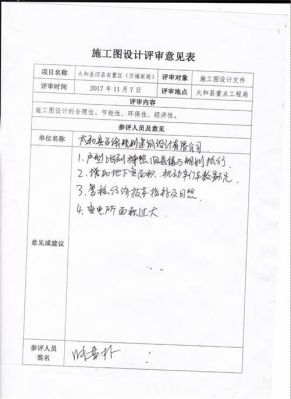 施工图设计评审意见表
项目名称 太和县旧县安置区（万福家苑） 评审对象 施工图设计文件
评审时间 2017年11月7日 评审地点 太和县重点工程局
评审内容
施工图设计的合理性、节能性、环保性、经济性。
参评人员及意见
单位名称 太和县规划建筑设计有限公司
1.户型比例按照旧县镇与规划执行
2.增加地下室面积，机动车停车数满足
3.复核经济技术指标及日照
意见或建议
4.变电所面积过大
参评人员
签名